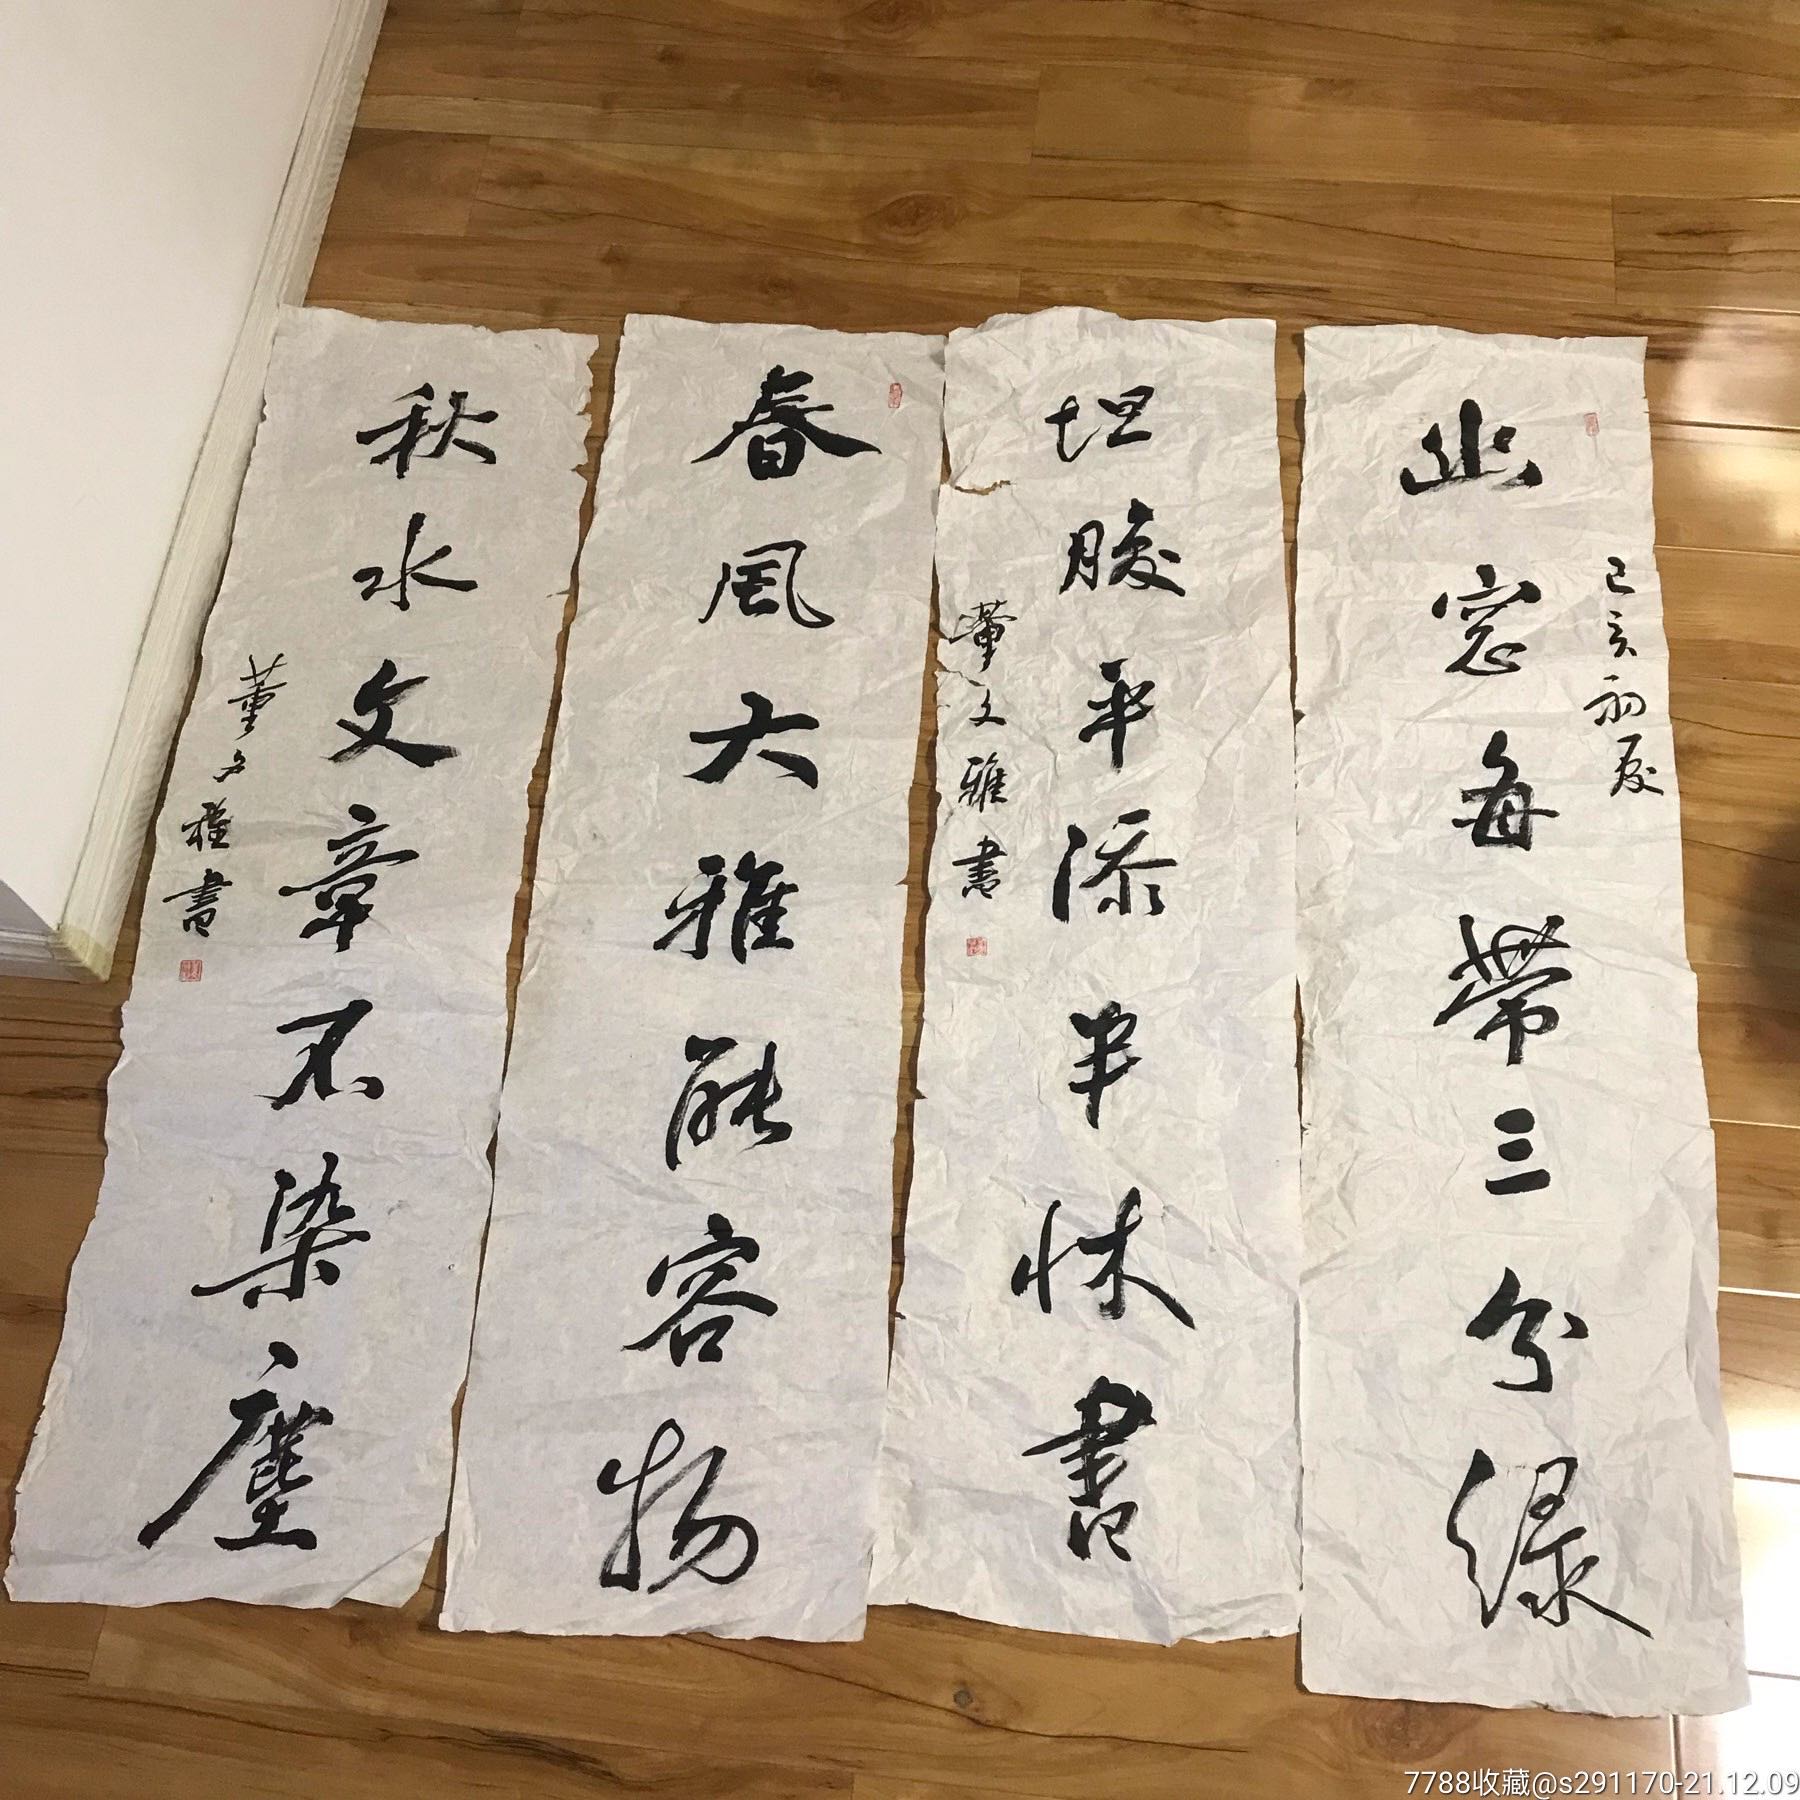 己亥初夏
幽窓每帶三分綠
坦腹平添半牀書
董文雅書
春風大雅能容物
秋水文章不染塵
董文雅書
7788收藏@s291170-21.12.09